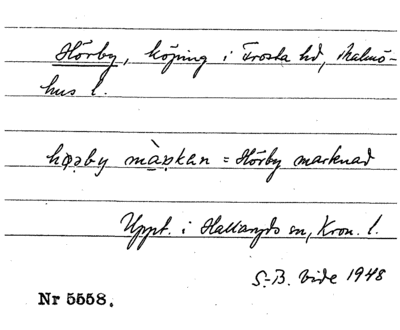 Hörby, köping i Frosta hd, Malmö-
hus l.
høꝛby màꝛkan = Hörby marknad
Uppt. i Hallaryds sn, Kron. l.
S.-B. Vide 1948
Nr 5558.